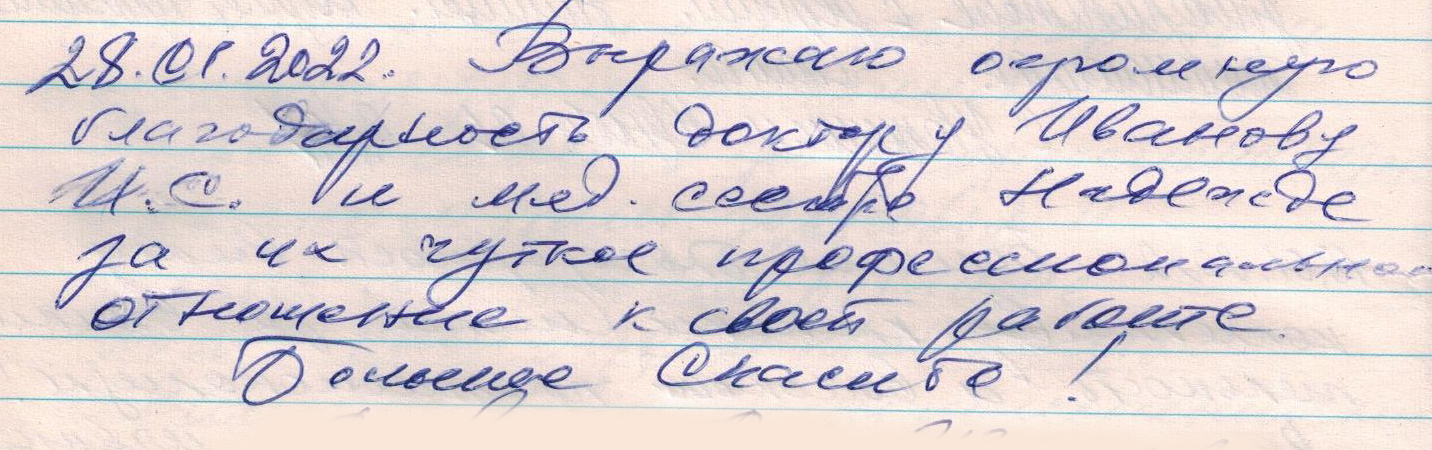 28.01.2022. Выражаю огромную
благодарность доктору Иванову
И.С. и мед. сестре Надежде
за их чуткое профессиональное
отношение к своей работе.
Большое Спасибо!